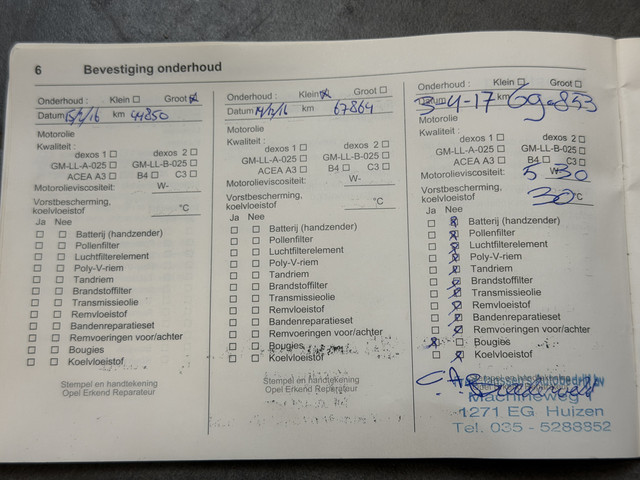 6 Bevestiging onderhoud
Onderhoud : Klein ☐ Groot ☒
Datum km
Motorolie
Kwaliteit :
dexos 1 ☐ dexos 2 ☐
GM-LL-A-025 ☐ GM-LL-B-025 ☐
ACEA A3 ☐ B4 ☐ C3 ☐
Motorolieviscositeit: W-
Vorstbescherming,
koelvloeistof °C
Ja Nee
☐ ☐ Batterij (handzender)
☐ ☐ Pollenfilter
☐ ☐ Luchtfilterelement
☐ ☐ Poly-V-riem
☐ ☐ Tandriem
☐ ☐ Brandstoffilter
☐ ☐ Transmissieolie
☐ ☐ Remvloeistof
☐ ☐ Bandenreparatieset
☐ ☐ Remvoeringen voor/achter
☐ ☐ Bougies
☐ ☐ Koelvloeistof
Stempel en handtekening
Opel Erkend Reparateur
Onderhoud : Klein ☒ Groot ☐
Datum km 67864
Motorolie
Kwaliteit :
dexos 1 ☐ dexos 2 ☐
GM-LL-A-025 ☐ GM-LL-B-025 ☐
ACEA A3 ☐ B4 ☐ C3 ☐
Motorolieviscositeit: W-
Vorstbescherming,
koelvloeistof °C
Ja Nee
☐ ☐ Batterij (handzender)
☐ ☐ Pollenfilter
☐ ☐ Luchtfilterelement
☐ ☐ Poly-V-riem
☐ ☐ Tandriem
☐ ☐ Brandstoffilter
☐ ☐ Transmissieolie
☐ ☐ Remvloeistof
☐ ☐ Bandenreparatieset
☐ ☐ Remvoeringen voor/achter
☐ ☐ Bougies
☐ ☐ Koelvloeistof
Stempel en handtekening
Opel Erkend Reparateur
Onderhoud : Klein ☐ Groot ☐
Datum 3-4-17 km 69.853
Motorolie
Kwaliteit :
dexos 1 ☐ dexos 2 ☐
GM-LL-A-025 ☐ GM-LL-B-025 ☐
ACEA A3 ☐ B4 ☐ C3 ☐
Motorolieviscositeit: 5 W- 30
Vorstbescherming,
koelvloeistof 30 °C
Ja Nee
☐ ☒ Batterij (handzender)
☐ ☒ Pollenfilter
☐ ☒ Luchtfilterelement
☐ ☒ Poly-V-riem
☐ ☒ Tandriem
☐ ☒ Brandstoffilter
☐ ☒ Transmissieolie
☐ ☒ Remvloeistof
☐ ☒ Bandenreparatieset
☐ ☒ Remvoeringen voor/achter
☒ ☐ Bougies
☐ ☒ Koelvloeistof
Machineweg
1271 EG Huizen
Tel. 035 - 5288852